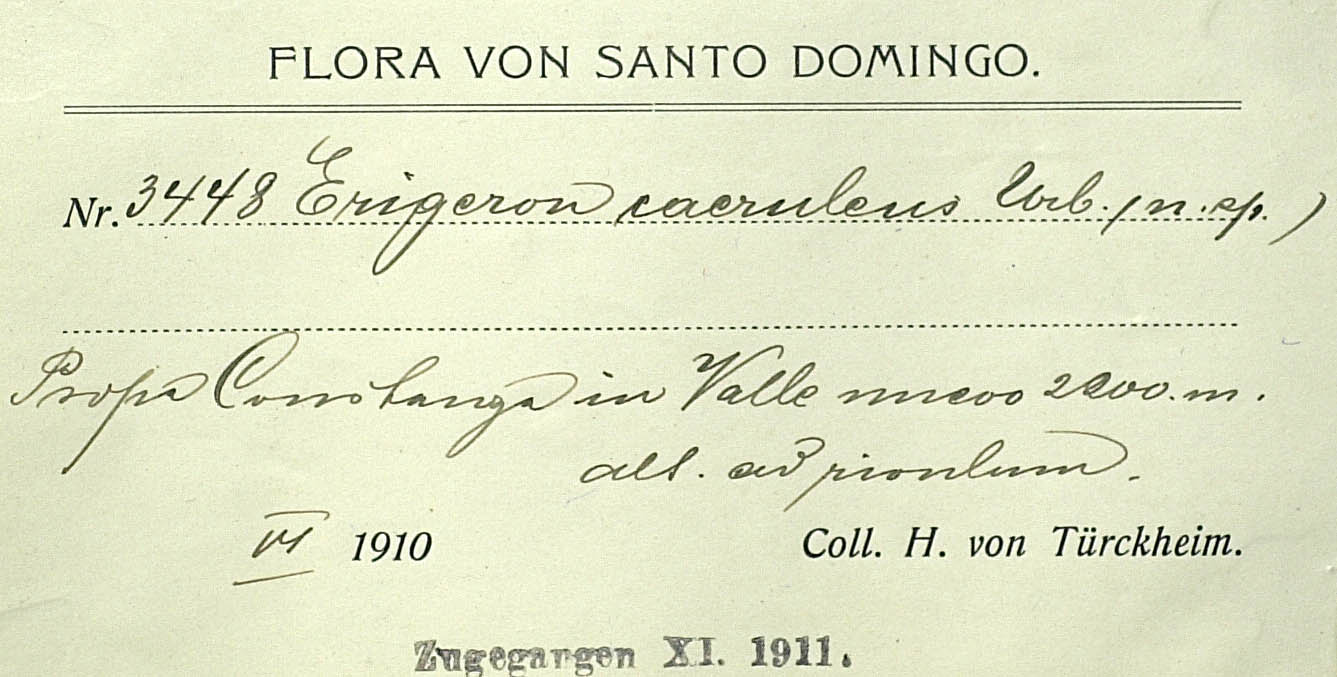 FLORA VON SANTO DOMINGO.
Nr. 3448 Erigeron caeruleus Urb. (n. sp.)
Prope Constanza in Valle nuevo 2200. m.
alt. ad rivulum.
VI 1910 Coll. H. von Türckheim.
Zugegangen XI. 1911.